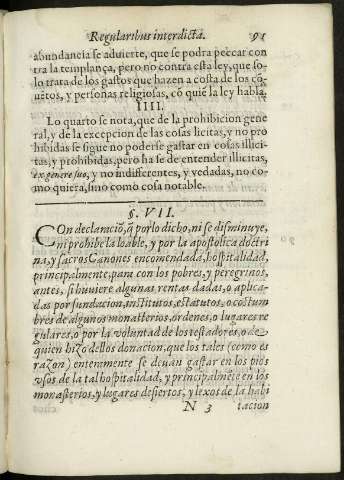 Regularibus interdicta. 91
abundancia se aduierte, que se podra peccar con
tra la templança, pero no contra esta ley, que so-
lo trata de los gastos que hazen a costa de los cō-
uētos, y personas religiosas, cō quiē la ley habla.
IIII.
Lo quarto se nota, que de la prohibicion gene
ral, y de la excepcion de las cosas licitas, y no pro
hibidas se sigue no poderse gastar en cosas illici-
tas, y prohibidas, pero ha se de entender illicitas,
ex genere suo, y no indifferentes, y vedadas, no co-
mo quiera, sino como cosa notable.
§. VII.
COn declaraciō, q̄ por lo dicho, ni se disminuye,
ni prohibe la loable, y por la apostolica doctri
na, y sacros Canones encomendada, hospitalidad,
principalmente, para con los pobres, y peregrinos,
antes, si huuiere algunas rentas dadas, o aplica-
das por fundacion, institutos, estatutos, o costum
bres de algunos monasterios, ordenes, o lugares re
gulares, o por la voluntad de los testadores, o de
quien hizo dellos donacion, que los tales (como es
razon) enteramente se deuan gastar en los pios
vsos de la tal hospitalidad, y principalmēte en los
monasterios, y lugares desiertos, y lexos de la habi
N 3 tacion